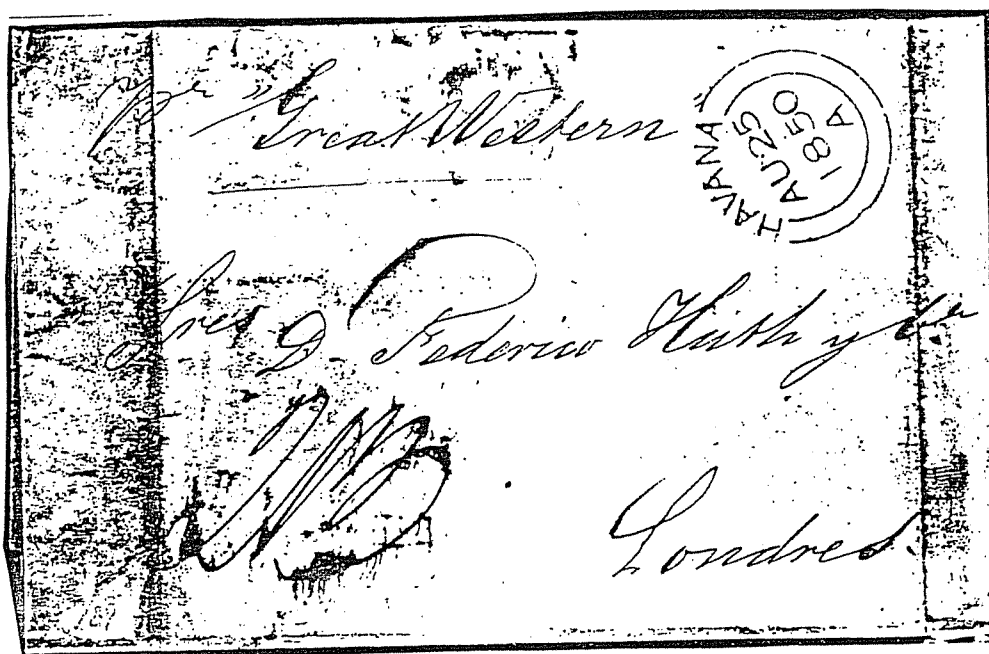 per "Great Western"
HAVANA
AU 25
1850
A
Sres D. Federico Huth y Ca
Londres.